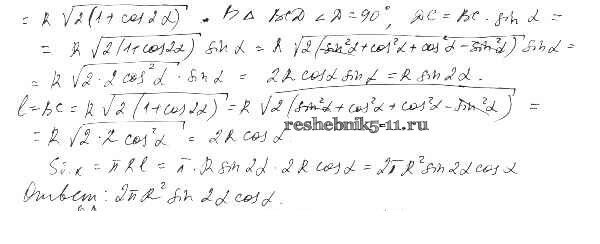 = R √2(1+cos2α) . В Δ BCD ∠D=90°, DC = BC · sin α =
= R √2(1+cos2α) sin α = R √2(sin²α+cos²α+cos²α−sin²α) sin α =
= R √2·2cos²α · sin α = 2R cos α sin α = R sin 2α.
l = BC = R √2(1+cos2α) = R √2(sin²α+cos²α+cos²α−sin²α) =
= R √2·2cos²α = 2R cos α
reshebnik5-11.ru
Sб.к = πRl = π · R sin 2α · 2R cos α = 2πR² sin 2α cos α
Ответ: 2πR² sin 2α cos α.